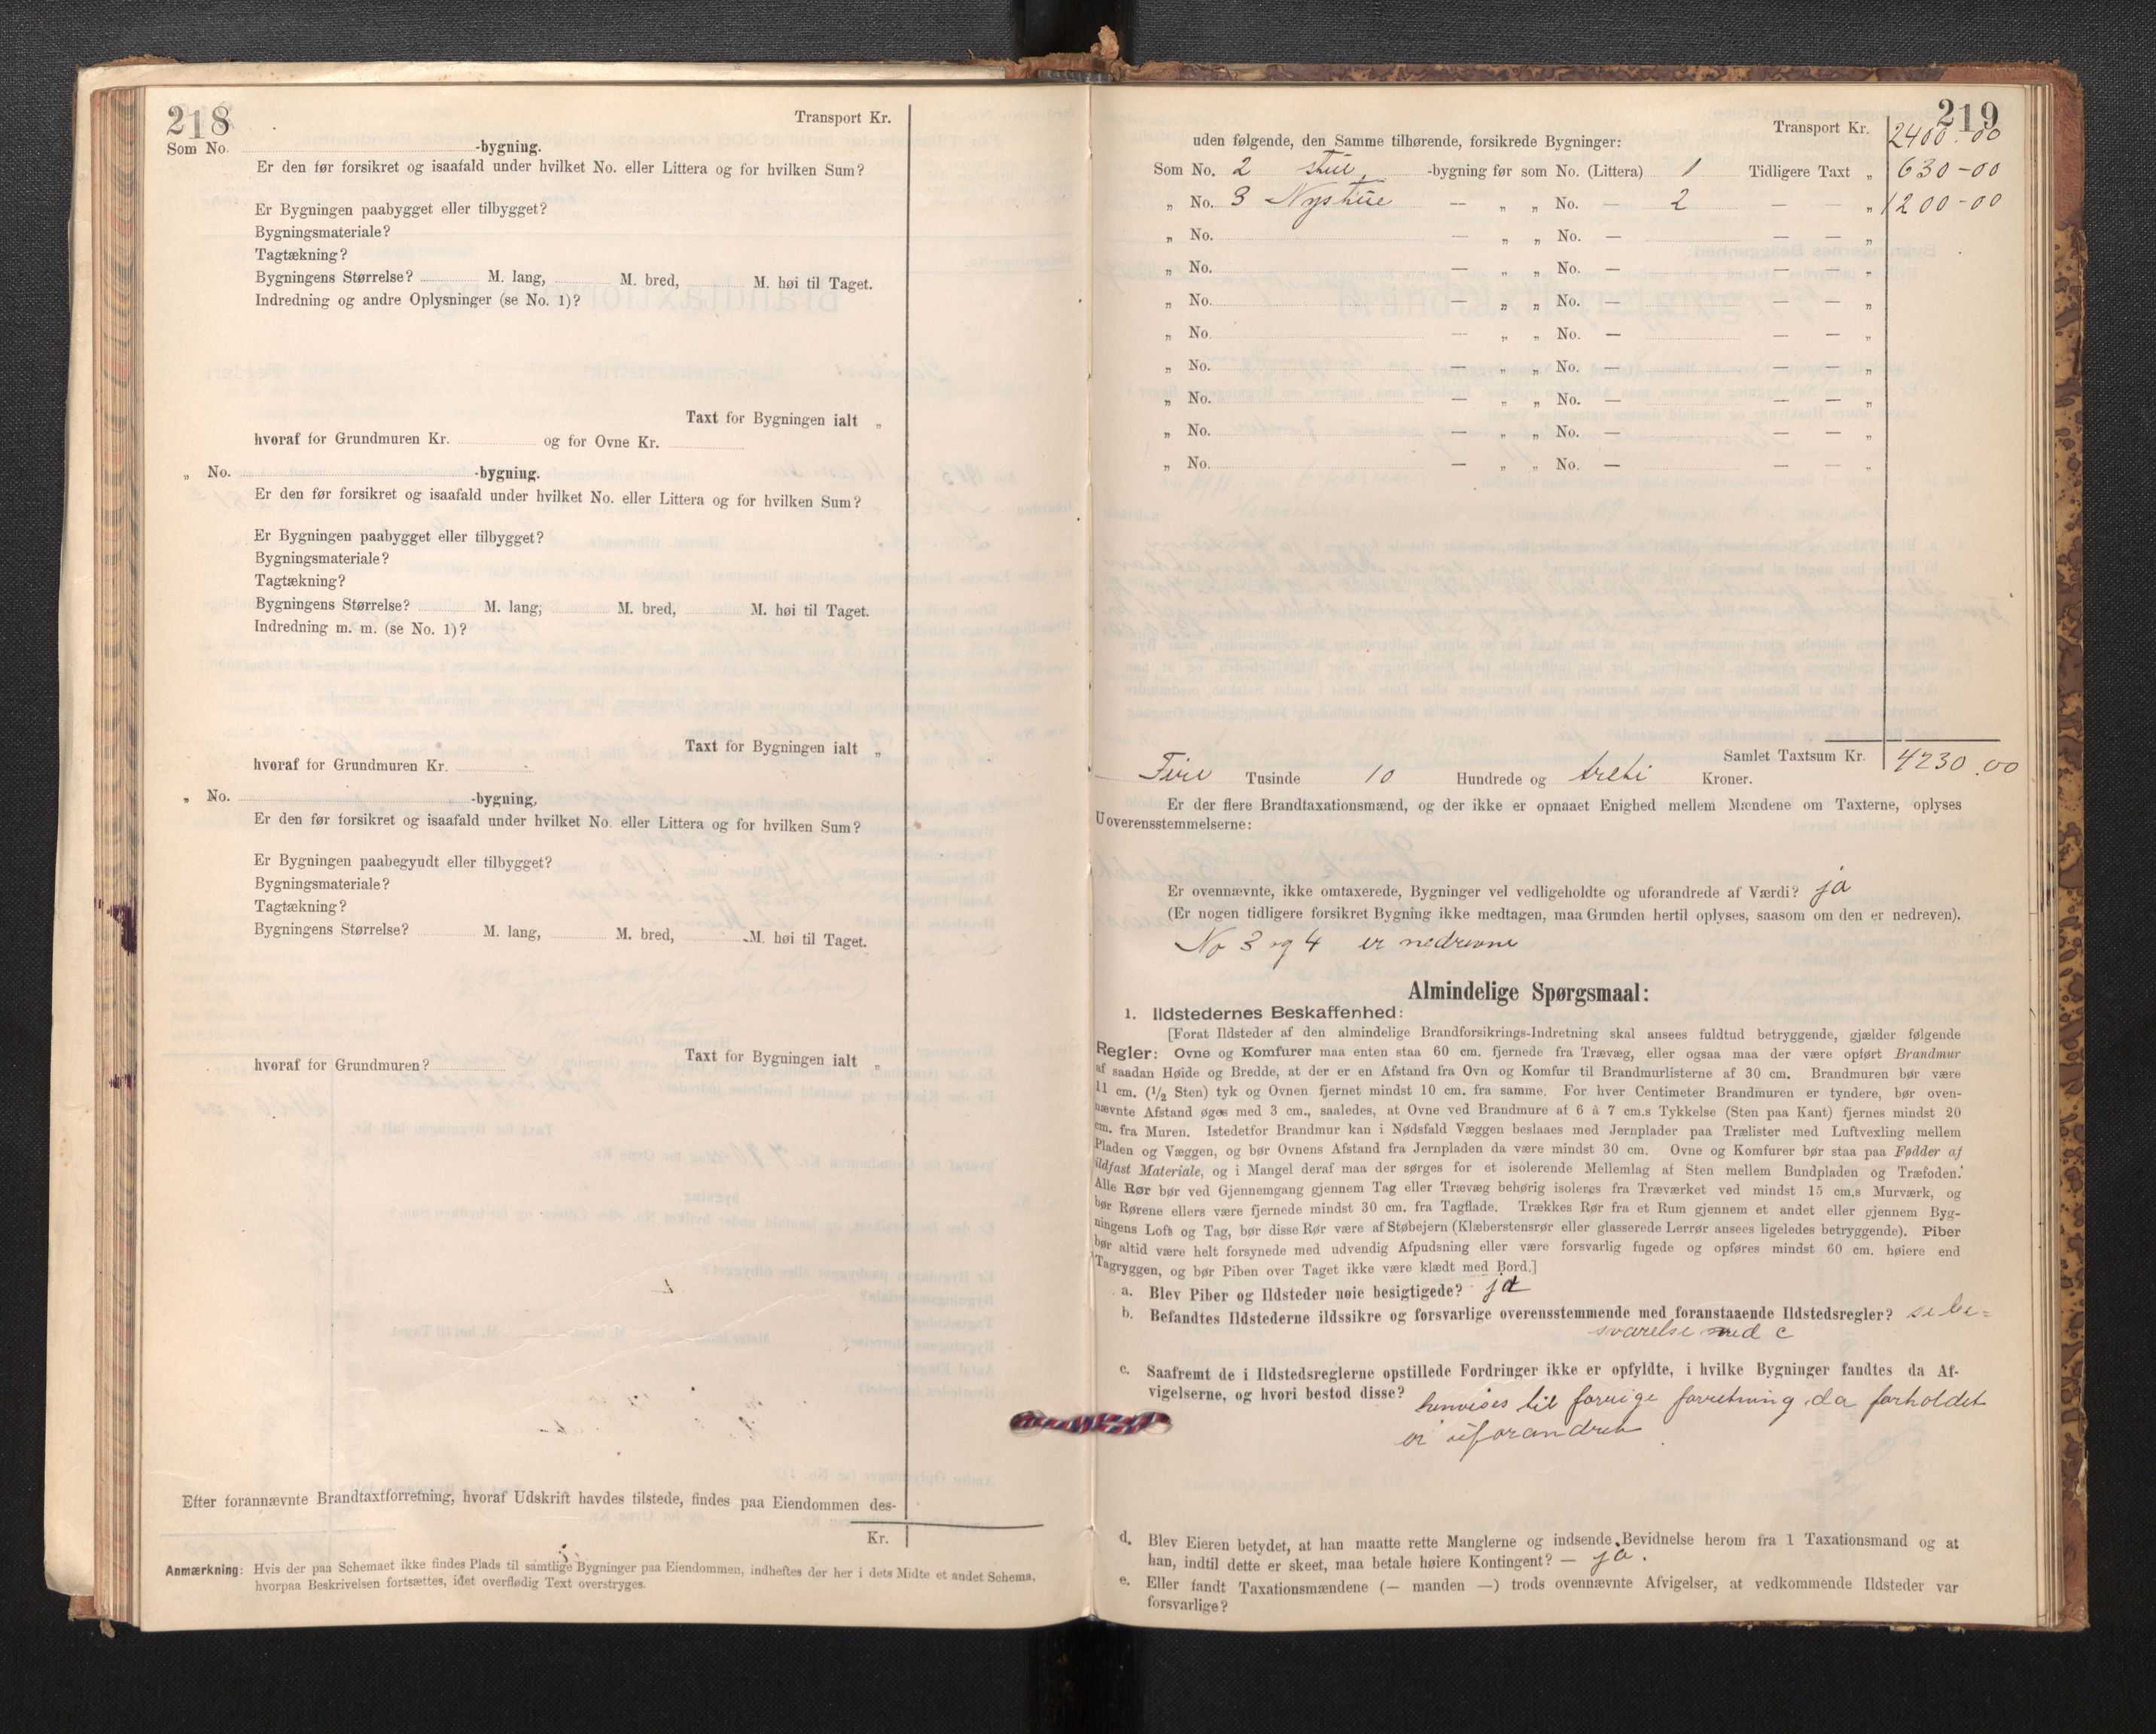 218
Transport Kr.
Som No. -bygning.
Er den før forsikret og isaafald under hvilket No. eller Littera og for hvilken Sum?
Er Bygningen paabygget eller tilbygget?
Bygningsmateriale?
Tagtækning?
Bygningens Størrelse? M. lang, M. bred, M. høi til Taget.
Indredning og andre Oplysninger (se No. 1)?
Taxt for Bygningen ialt „
hvoraf for Grundmuren Kr. og for Ovne Kr.
„ No. -bygning.
Er den før forsikret og isaafald under hvilket No. eller Littera og for hvilken Sum?
Er Bygningen paabygget eller tilbygget?
Bygningsmateriale?
Tagtækning?
Bygningens Størrelse? M. lang, M. bred, M. høi til Taget.
Indredning m. m. (se No. 1)?
Taxt for Bygningen ialt „
hvoraf for Grundmuren Kr.
„ No. -bygning,
Er den før forsikret og isaafald under hvilket No. eller Littera og for hvilken Sum?
Er Bygningen paabegyndt eller tilbygget?
Bygningsmateriale?
Tagtækning?
Bygningens Størrelse? M. lang, M. bred, M. høi til Taget.
Taxt for Bygningen ialt „
hvoraf for Grundmuren?
Efter forannævnte Brandtaxtforretning, hvoraf Udskrift havdes tilstede, findes paa Eiendommen des-
Kr.
Anmærkning: Hvis der paa Schemaet ikke findes Plads til samtlige Bygninger paa Eiendommen, indheftes der her i dets Midte et andet Schema,
hvorpaa Beskrivelsen fortsættes, idet overflødig Text overstryges.
219
Transport Kr. 2400.00
uden følgende, den Samme tilhørende, forsikrede Bygninger:
Som No. 2 stue -bygning før som No. (Littera) 1 Tidligere Taxt „ 630-00
„ No. 3 Nystue — „ „ No. — 2 — — „ 1200-00
„ No. — „ „ No. — — — „
„ No. — „ „ No. — — — „
„ No. — „ „ No. — — — „
„ No. — „ „ No. — — — „
„ No. — „ „ No. — — — „
„ No. — „ „ No. — — — „
„ No. — „ „ No. — — — „
„ No. — „ „ No. — — — „
Samlet Taxtsum Kr. 4230.00
Fire Tusinde 10 Hundrede og treti Kroner.
Er der flere Brandtaxationsmænd, og der ikke er opnaaet Enighed mellem Mændene om Taxterne, oplyses
Uoverensstemmelserne:
Er ovennævnte, ikke omtaxerede, Bygninger vel vedligeholdte og uforandrede af Værdi? ja
(Er nogen tidligere forsikret Bygning ikke medtagen, maa Grunden hertil oplyses, saasom om den er nedreven).
No 3 og 4 er nedrevne
Almindelige Spørgsmaal:
1. Ildstedernes Beskaffenhed:
[Forat Ildsteder af den almindelige Brandforsikrings-Indretning skal ansees fuldtud betryggende, gjælder følgende
Regler: Ovne og Komfurer maa enten staa 60 cm. fjernede fra Trævæg, eller ogsaa maa der være opført Brandmur
af saadan Høide og Bredde, at der er en Afstand fra Ovn og Komfur til Brandmurlisterne af 30 cm. Brandmuren bør være
11 cm. (1/2 Sten) tyk og Ovnen fjernet mindst 10 cm. fra samme. For hver Centimeter Brandmuren er tyndere, bør oven-
nævnte Afstand øges med 3 cm., saaledes, at Ovne ved Brandmure af 6 à 7 cm.s Tykkelse (Sten paa Kant) fjernes mindst 20
cm. fra Muren. Istedetfor Brandmur kan i Nødsfald Væggen beslaaes med Jernplader paa Trælister med Luftvexling mellem
Pladen og Væggen, og bør Ovnens Afstand fra Jernpladen da være mindst 30 cm. Ovne og Komfurer bør staa paa Fødder af
ildfast Materiale, og i Mangel deraf maa der sørges for et isolerende Mellemlag af Sten mellem Bundpladen og Træfoden.
Alle Rør bør ved Gjennemgang gjennem Tag eller Trævæg behørig isoleres fra Træværket ved mindst 15 cm.s Murværk, og
bør Rørene ellers være fjernede mindst 30 cm. fra Tagflade. Trækkes Rør fra et Rum gjennem et andet eller gjennem Byg-
ningens Loft og Tag, bør disse Rør være af Støbejern (Klæberstensrør eller glasserede Lerrør ansees ligeledes betryggende). Piber
bør altid være helt forsynede med udvendig Afpudsning eller være forsvarlig fugede og opføres mindst 60 cm. høiere end
Tagryggen, og bør Piben over Taget ikke være klædt med Bord.]
a. Blev Piber og Ildsteder nøie besigtigede? ja
b. Befandtes Ildstederne ildssikre og forsvarlige overensstemmende med foranstaaende Ildstedsregler? se be=
svarelse ved c
c. Saafremt de i Ildstedsreglerne opstillede Fordringer ikke er opfyldte, i hvilke Bygninger fandtes da Af-
vigelserne, og hvori bestod disse? henvises til forrige forretning da forholdet
er uforandret
d. Blev Eieren betydet, at han maatte rette Manglerne og indsende Bevidnelse herom fra 1 Taxationsmand og at
han, indtil dette er skeet, maa betale høiere Kontingent? — ja.
e. Eller fandt Taxationsmændene (— manden —) trods ovennævnte Afvigelser, at vedkommende Ildsteder var
forsvarlige?